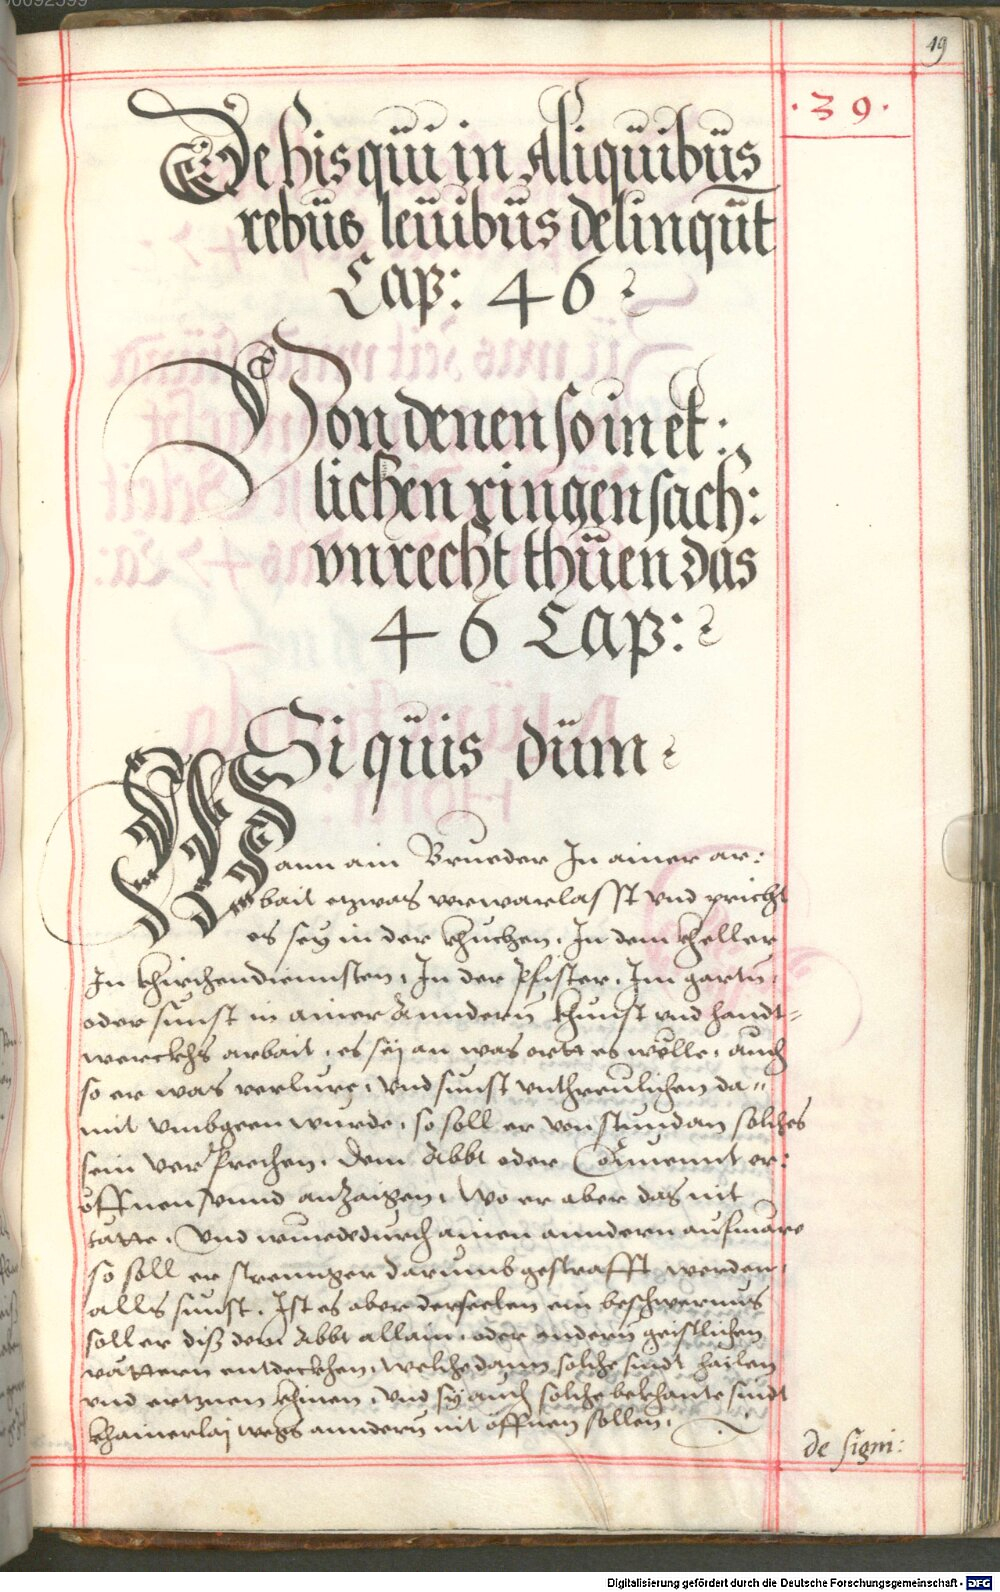 49
· 3 9 ·
De his qüi in Aliquibüs
rebüs leüibüs delinqūt
Cap: 4 6
Von denen so in et:
lichen ringen sach:
vnrecht thüen das
4 6 Cap:
Si qüis düm
Wann ain Brueder In ainer ar:
bait etzwas verwarlasst vnd pricht
es sey in der khuchen, In dem kheller
In khirchendiennsten, In der Pfister, Im gartn,
oder sunst in ainer Anndern khunst vnd handt-
werckhs arbait, es sej an was ortt es wölle, auch
so er was verlure, vnd sunst vnthreulichen da-
mit vmbgeen wurde, so soll er von stundan solches
sein verprechen, dem Abbt oder Conuennt er:
öffnen vnnd anzaigen, Wo er aber das nit
tatte, Vnd wurde durch ainen anndern aufmäre
so soll er strennger darumb gestrafft werden,
alls sunst, Ist es aber der seelen ein beschwernus
soll er diß dem Abbt allain, oder andern geistlichen
vättern entdeckhen, welche dann solche sindt hailen
vnd ertznen khinen, vnd sy auch solche bekhante sindt
khainerlaj wegs anndern nit öffnen sollen.
de signi:
Digitalisierung gefördert durch die Deutsche Forschungsgemeinschaft - DFG